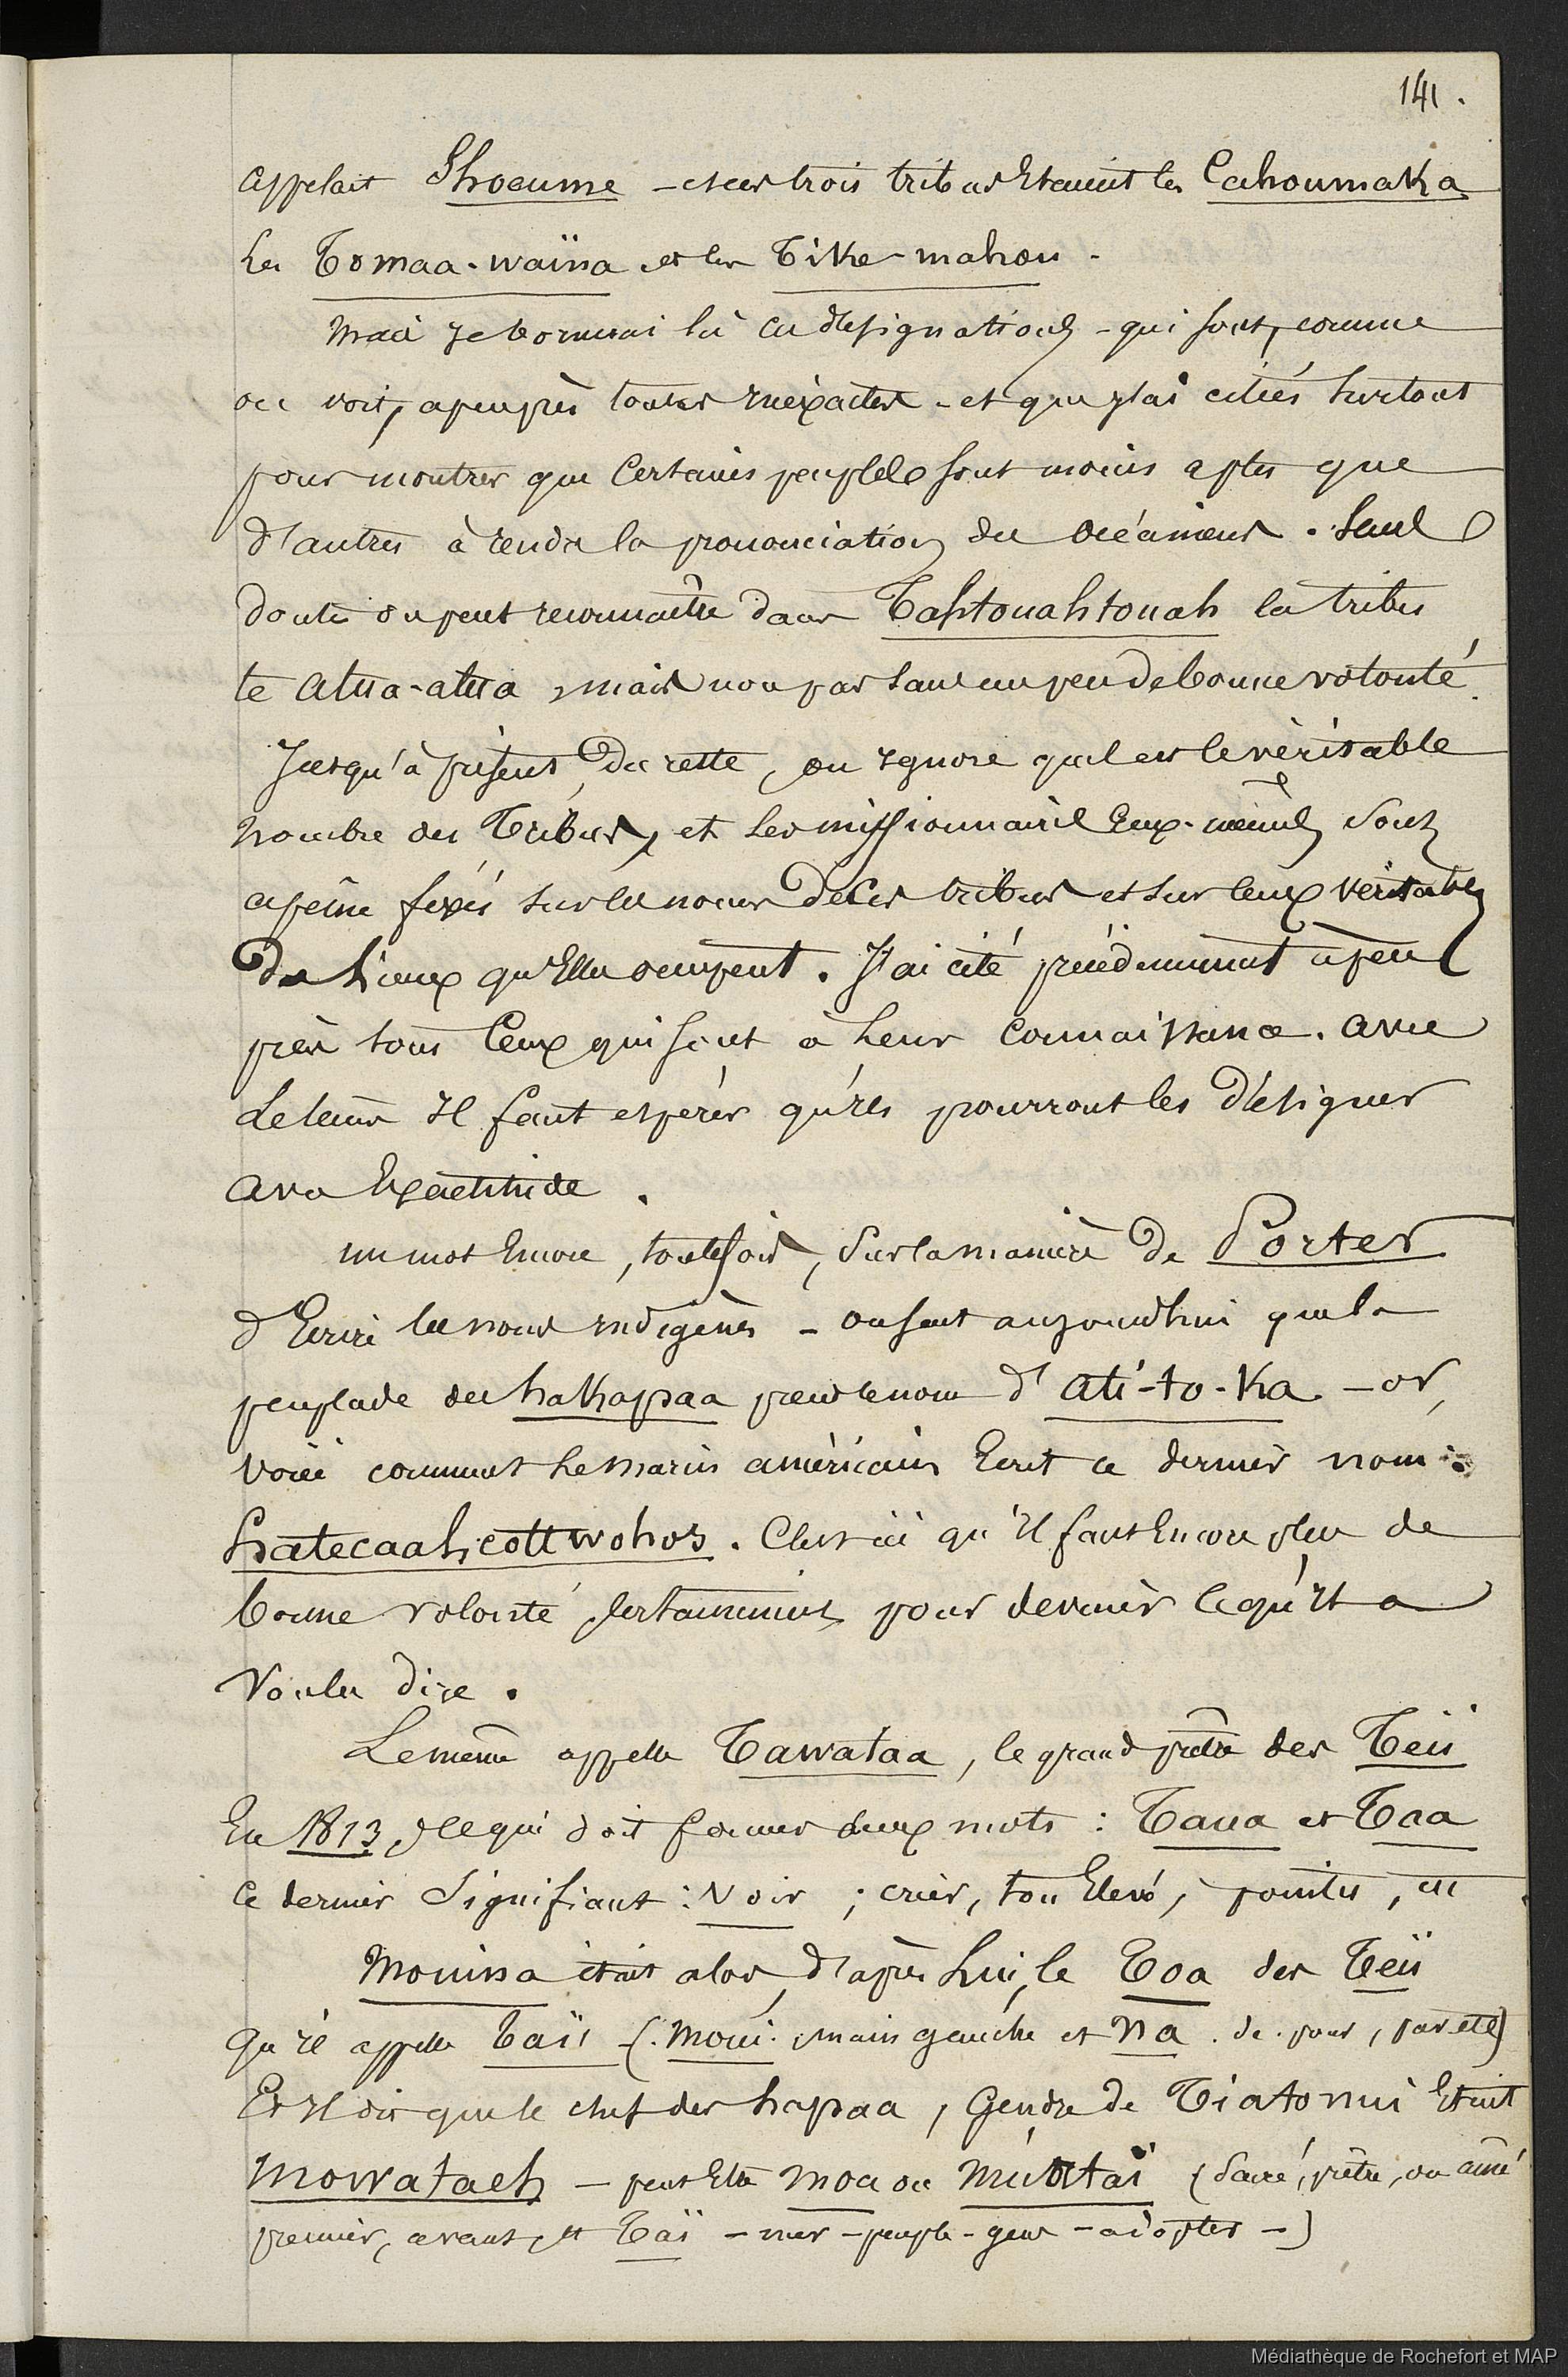 141.
appelait Shoeume - et ces trois tribus étaient les Cahoumaka
les Tomaa-waïna et les Tike-mahou.
Mais je bornerai là ces désignations - qui sont, comme
on voit, apeuprès toutes inéxactes - et que j'ai citées surtout
pour montrer que certaines peuplades sont moins aptes que
d'autres à rendre la prononciation des océaniens. Sans
doute on peut reconnaître dans Tahtouahtouah la tribu
te atua-atua, mais non pas sans un peu de bonne volonté.
Jusqu'à présent, du reste, on ignore quel est le véritable
nombre des Tribus, et les missionnaires Eux-mêmes sont
apeine fixés sur les noms de ces tribus et sur ceux véritables
des lieux qu'Elles occupent. J'ai cité précédemment apeu
près tous ceux qui sont à leur connaissance. avec
le tems il faut espérer qu'ils pourront les désigner
avec Exactitude.
un mot Encore, toutefois, sur la manière de Porter
d'Ecrire les noms indigènes - on sait aujourd'hui que la
peuplade des hakapaa prend le nom d'ati-to-ka - or,
voici comment le marin américain Ecrit ce dernier nom :
hatecaahcottwohos. C'est ici qu'il faut Encore plus de
bonne volonté certainement pour deviner ce qu'il a
voulu dire.
Le même appelle Tawataa, le grand prêtre des Teii
En 1813, ce qui doit former deux mots : Taua et Taa
ce dernier signifiant : voir ; crier, ton Elevé, pointu, etc
Mouina était alors, d'après lui, le Toa des Teii
qu'il appelle Taïi (. Moui. main gauche et na. de. pour, par etc)
Et il dit que le chef des hapaa, gendre de Tiatonui Etait
mowataeh - peut Etre moa ou mùatai (sacré, prêtre, ou ainé
premier, avant, et Taï - mer - peuple - gens - adopter -)
Médiathèque de Rochefort et MAP